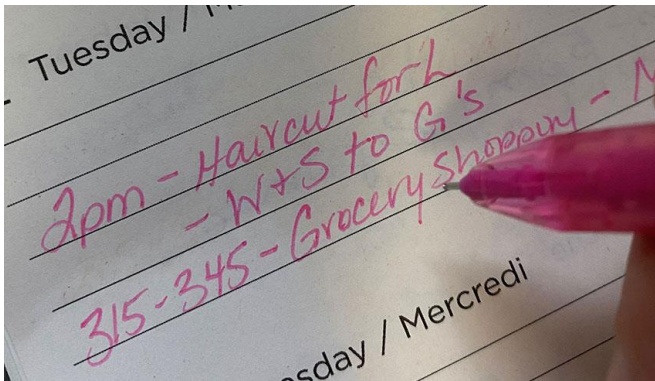 Tuesday / M
2pm - Haircut for L
- W+S to G's
315-345 - Grocery Shopping - M
sday / Mercredi